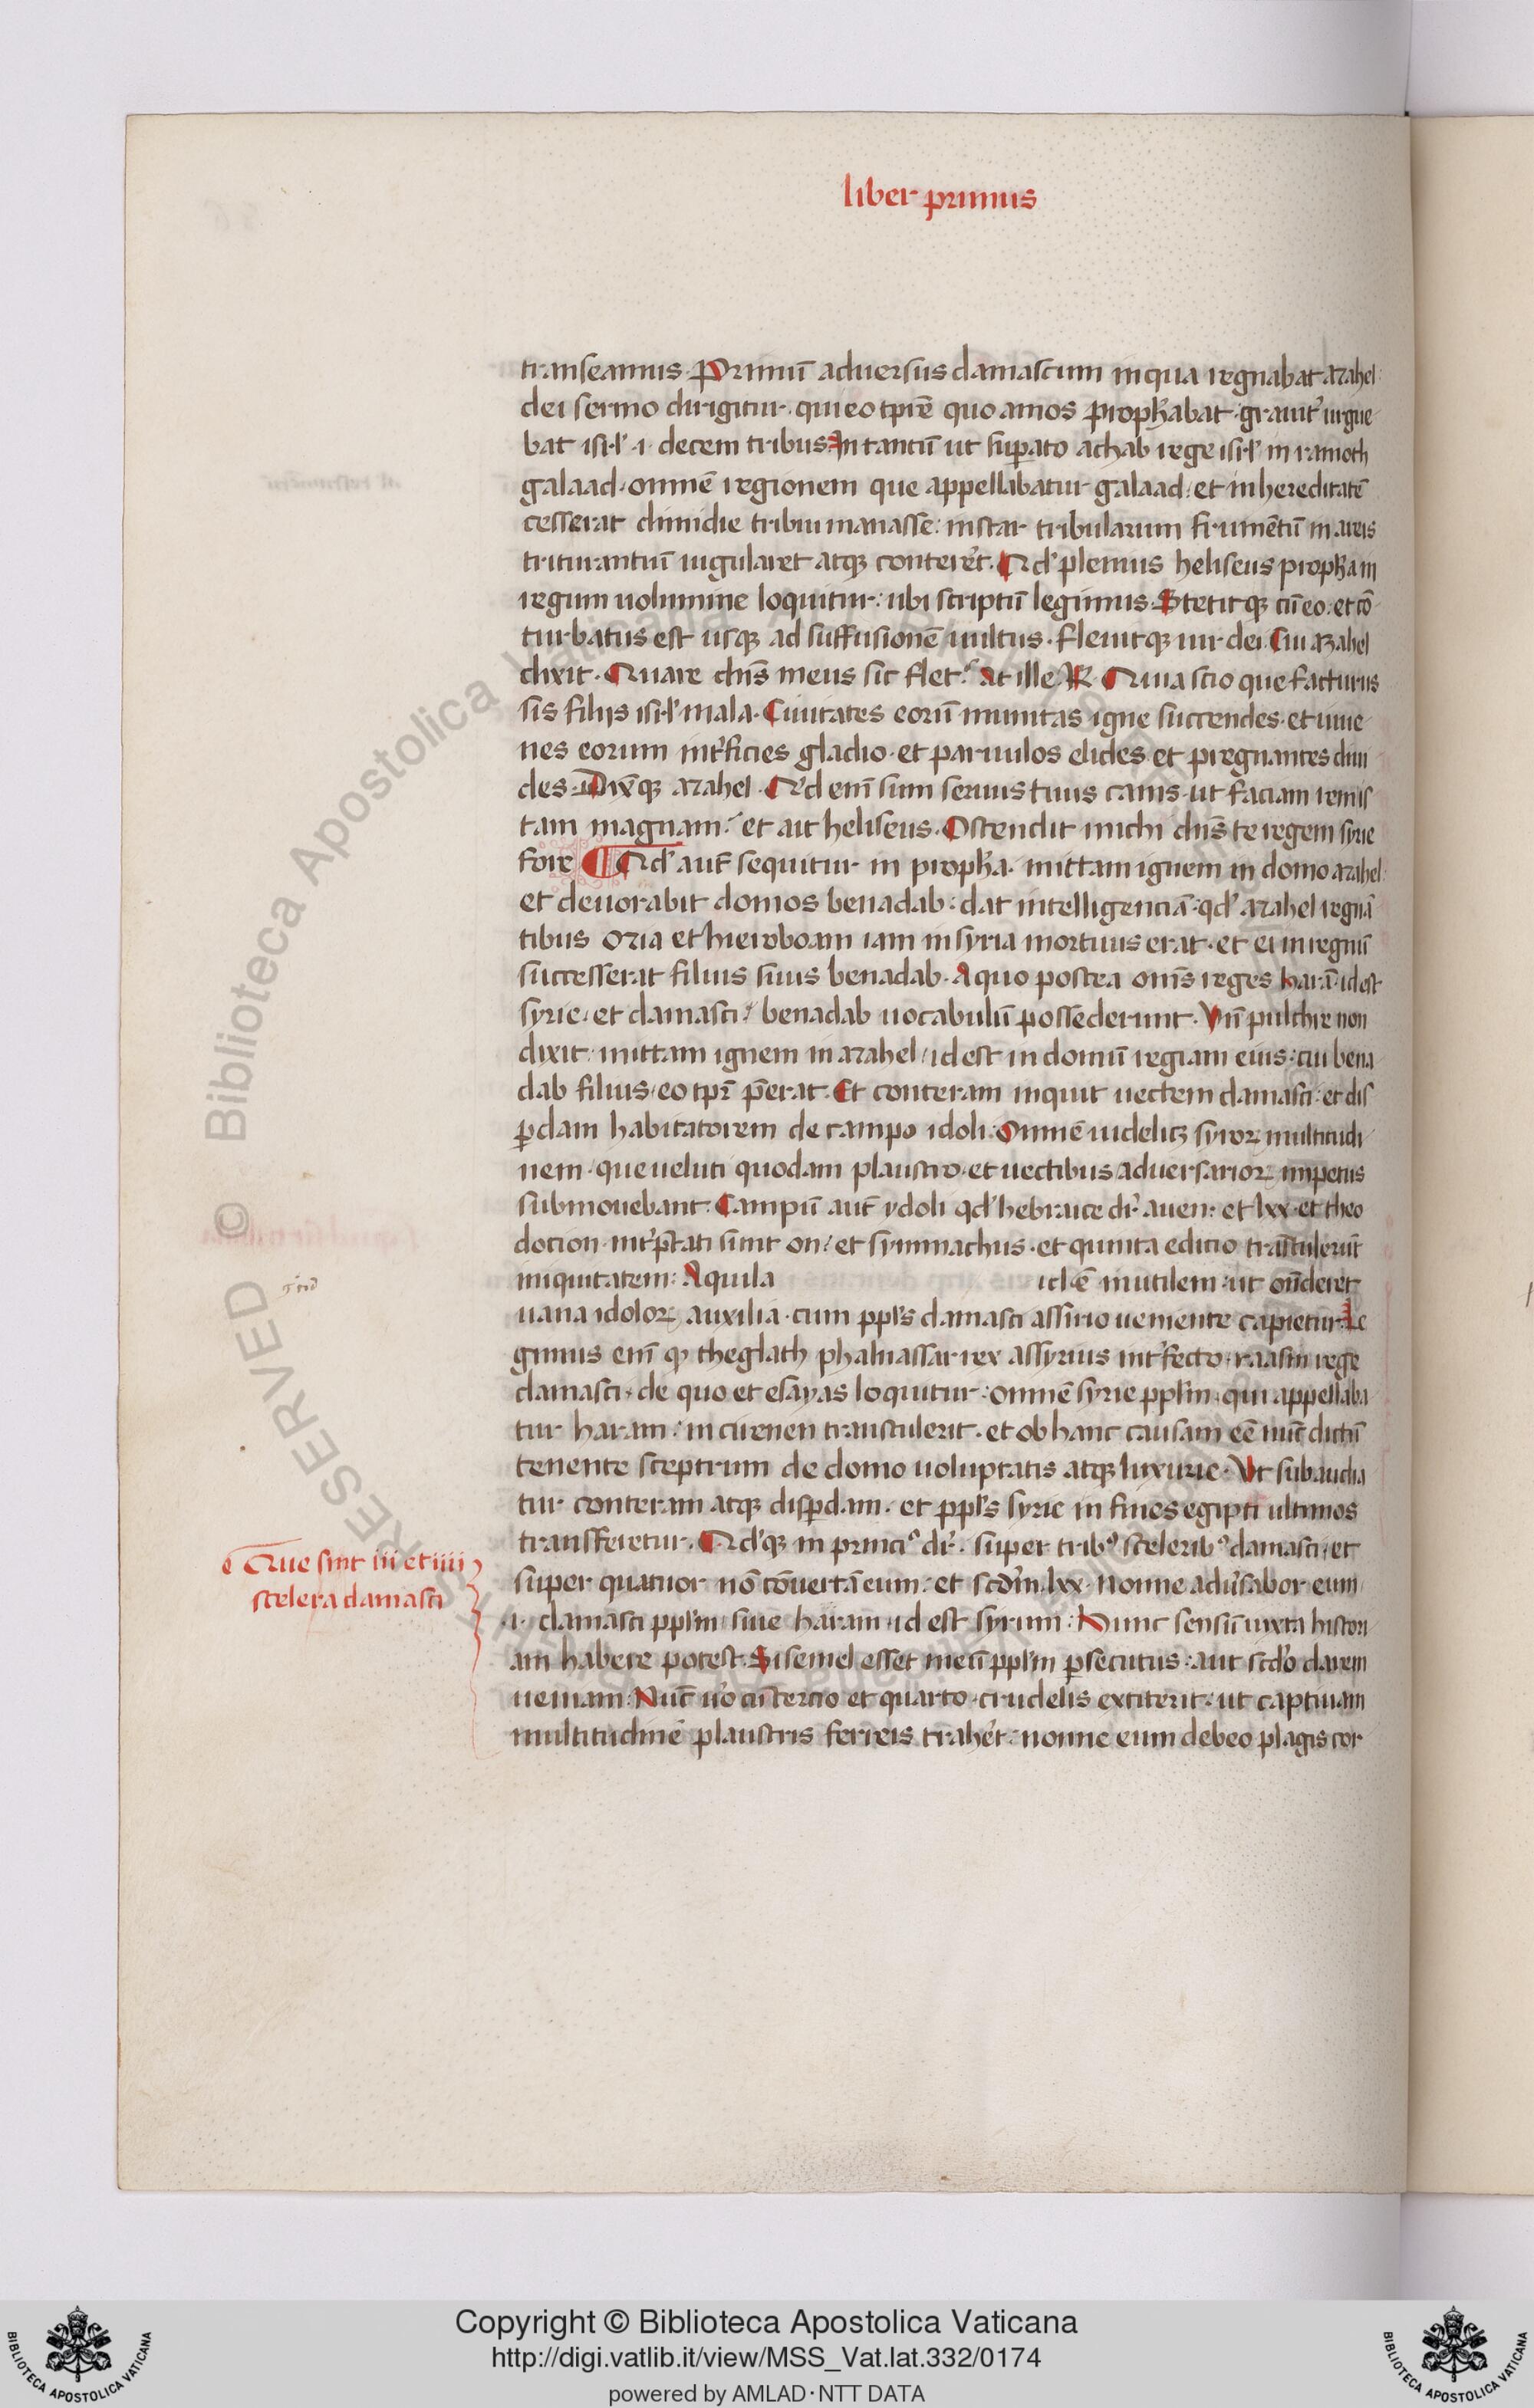 liber primus
transeamus. Primū adversus damascum in qua regnabat azahel
dei sermo dirigitur. qui eo tpr̄e quo amos proph̄abat. grauit̄ urgue
bat isrl' .i. decem tribus. In tantū ut sup̄ato achab rege isrl' in ramoth
galaad. omnē regionem que appellabatur galaad. et in hereditatē
cesserat dimidie tribui manasse: instar tribularum frumētū in areis
triturantiū iugularet atqȝ conteret̄. Qd' plenius heliseus proph̄a in
regum uolumine loquitur: ubi scriptū legimus. Stetitqȝ cū eo. et cō
turbatus est usqȝ ad suffusionē uultus. fleuitqȝ uir dei. Cui azahel
dixit. Quare dn̄s meus sic flet? At ille R̄. Quia scio que facturus
sis filijs isrl' mala. Ciuitates eorū munitas igne succendes. et iuue
nes eorum int̄ficies gladio. et paruulos elides et pregnantes diui
des. Dix̄qȝ azahel. Qd enī sum seruus tuus canis. ut faciam rem is
tam magnam? et ait heliseus. Ostendit michi dn̄s te regem syrie
fore ¶ Qd' aut̄ sequitur in proph̄a. mittam ignem in domo azahel
et deuorabit domos benadab: dat intelligenciā. qd' azahel regnā
tibus ozia et hieroboam iam in syria mortuus erat. et ei in regnū
successerat filius suus benadab. A quo postea om̄s reges harā. id est
syrie. et damasci. benadab uocabulū possederunt. Vn̄ pulchre non
dixit. mittam ignem in azahel / id est in domū regiam eius: cui bena
dab filius. eo tpr̄ p̄erat. Et conteram inquit uectem damasci: et dis
ꝑdam habitatorem de campo idoli. Omnē uidelicȝ syroꝝ multitudi
nem. que ueluti quodam plaustro. et uectibus adversarioꝝ impetus
submouebant. Campū aut̄ ydoli qd' hebraice dr̄ auen: et lxx. et theo
docion int̄p̄tati sunt on. et symmachus. et quinta edicio trāstulerūt
iniquitatem: Aquila id ē inutilem. ut on̄deret
uana idoloꝝ auxilia. cum ppl's damasci assirio ueniente capietur. Le
gimus enī qꝫ theglath phalnassar rex assyrius int̄fecto raasin rege
damasci. de quo et esayas loquitur: omnē syrie ppl'm. qui appellaba
tur haram: in cirenen transtulerit. et ob hanc causam eē nūc dictū
tenente sceptrum de domo uoluptatis atqȝ luxurie. Vt subaudia
tur conteram atqȝ disꝑdam. et ppl's syrie in fines egipti ultimos
transferetur. Qd'qȝ in princi° dr̄. super trib⁹ scelerib⁹ damasci. et
super quatuor nō cōuertā eum: et scd̄m. lxx. Nonne adūsabor eum
.i. damasci ppl'm siue haram. id est syrum. Nunc sensū iuxta histori
am habere potest. Si semel esset meū ppl'm ꝑsecutus: aut scd̄o darem
ueniam. Nūc ūo cū tercio et quarto. crudelis extiterit. ut captiuam
multitudinē plaustris ferreis trahet̄: nonne eum debeo plagis cor
Que sint iii et iiii
scelera damasci
© Biblioteca Apostolica Vaticana
RESERVED
Copyright © Biblioteca Apostolica Vaticana
http://digi.vatlib.it/view/MSS_Vat.lat.332/0174
powered by AMLAD·NTT DATA
BIBLIOTECA APOSTOLICA VATICANA
BIBLIOTECA APOSTOLICA VATICANA